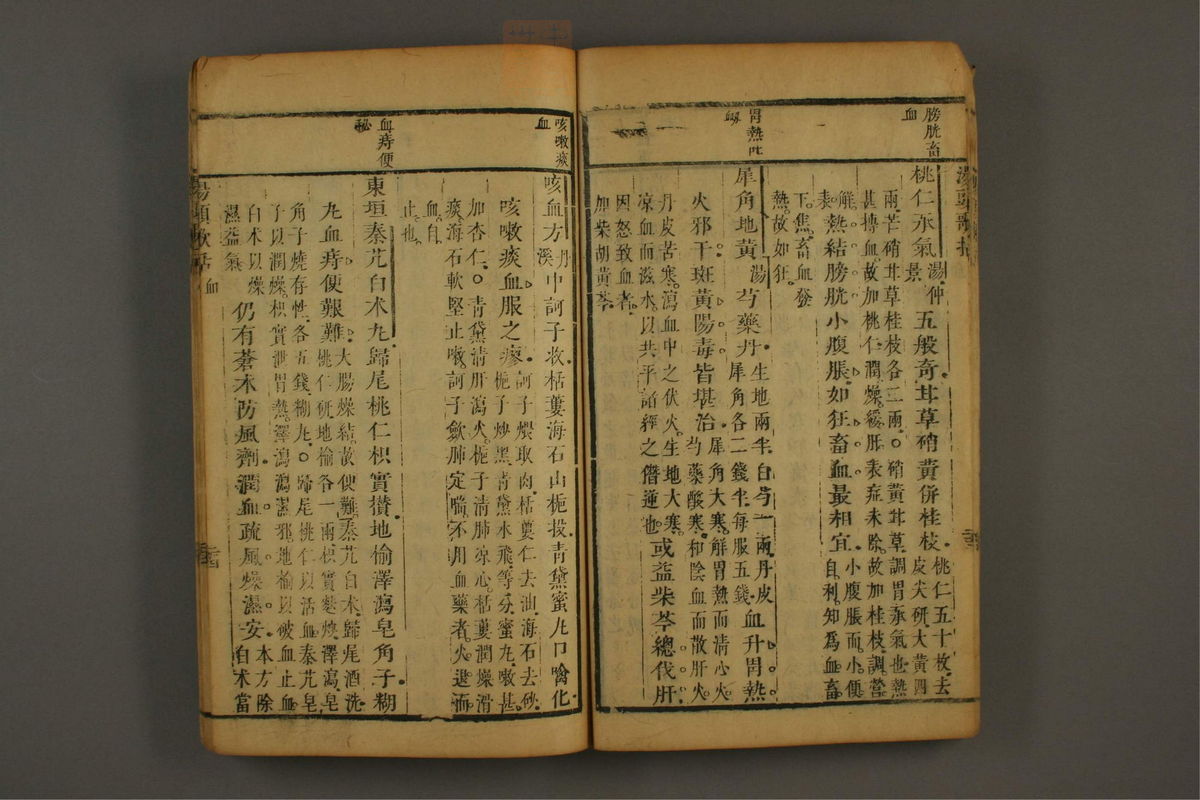 膀胱畜
血
胃熱吐
衂
桃仁承氣湯仲景五般奇。甘草硝黃併桂枝。
桃仁五十枚去
皮尖研大黃四
兩芒硝甘草桂枝各二兩。○硝黃甘草調胃承氣也熱
甚搏血。故加桃仁潤燥。緩肝表症未除。故加桂枝。調營
解表。
熱結膀胱小腹脹。如狂畜血最相宜。
小腹脹而小便
自利。知為血畜
下焦。畜血發
熱。故如狂。
犀角地黃湯芍藥丹。
生地兩半。白芍一兩丹皮
犀角各二錢半。每服五錢。
血升胃熱
火邪干。斑黃陽毒皆堪治。
犀角大寒。解胃熱而清心火。
芍藥酸寒。和陰血而散肝火。
丹皮苦寒。瀉血中之伏火。生地大寒。
凉血而滋水。以共平諸經之僭逆也。
或益柴芩總伐肝。
因怒致血者。
加柴胡黃芩。
咳嗽痰
血
血痔便
秘
咳血方丹溪中訶子收。栝蔞海石山梔投。青黛蜜丸口噙化
咳嗽痰血服之瘳。
訶子煨取肉。栝蔞仁去油。海石去砂。
梔子炒黑。青黛水飛。等分蜜丸。嗽甚
加杏仁。○青黛清肝瀉火。梔子清肺凉心。栝蔞潤燥滑
痰。海石軟堅止嗽。訶子歛肺定喘。不用血藥者。火退而
血自
止也。
東垣秦艽白朮丸。歸尾桃仁枳實攢。地榆澤瀉皂角子。糊
丸血痔便艱難。
大腸燥結。故便難。秦艽白朮。歸尾酒洗。
桃仁研地榆各一兩枳實麩炒。澤瀉皂
角子燒存性。各五錢。糊丸。○歸尾桃仁以活血。秦艽皂
子以潤燥。枳實泄胃熱。澤瀉瀉濕邪。地榆以破血止血
白朮以燥
濕益氣
仍有蒼朮防風劑。潤血疏風燥濕安。
本方除
白朮當
湯頭歌括
血